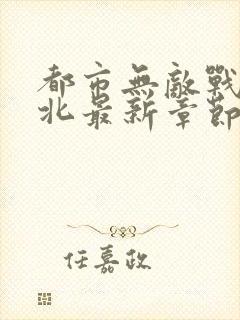 都市無敵戰
北最新章節
任嘉政